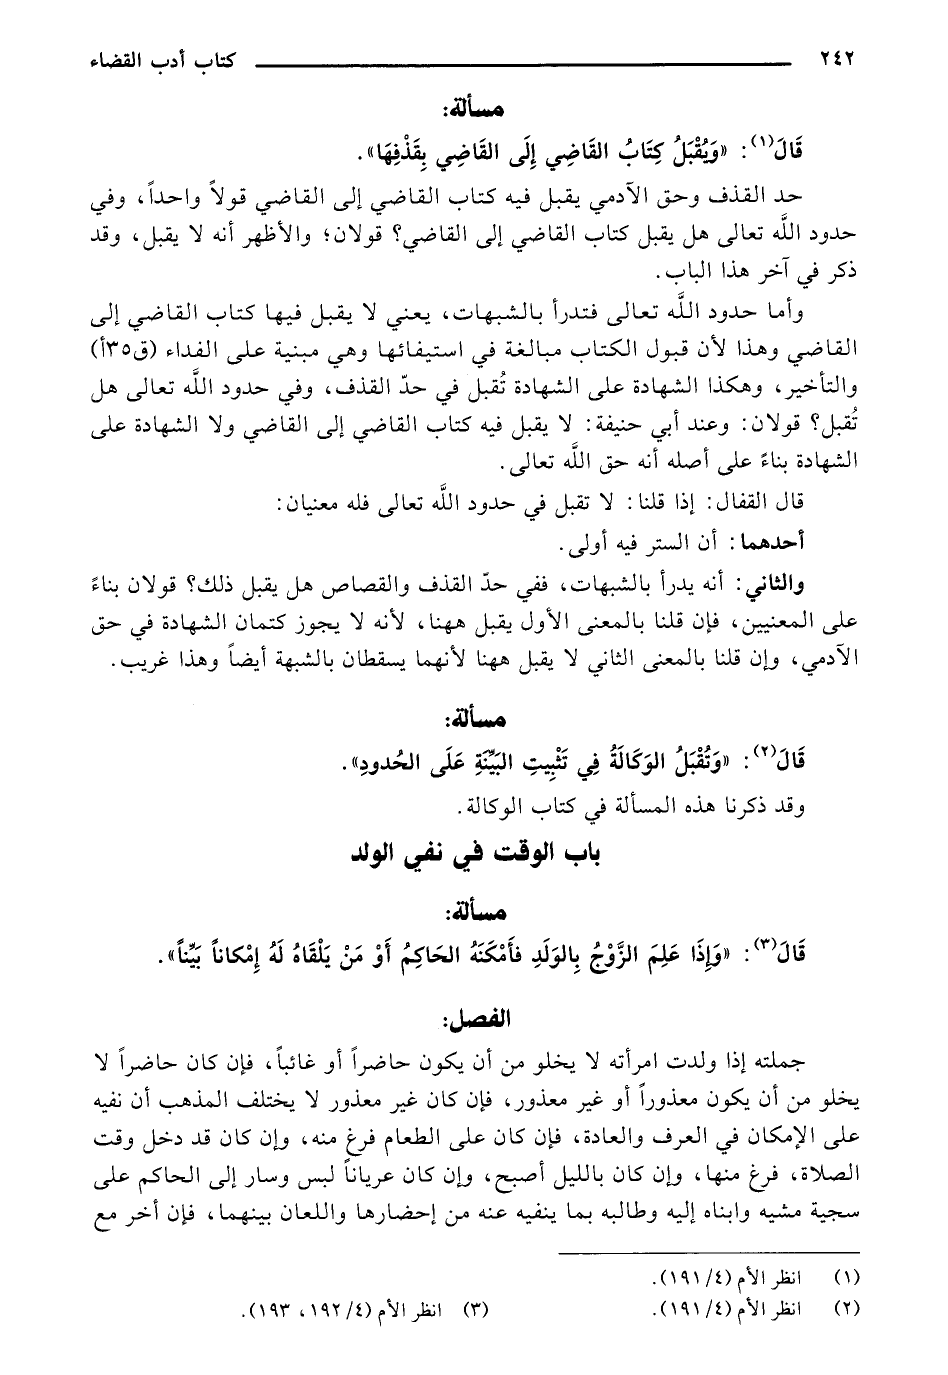 ٢٤٢ كتاب أدب القضاء
مسألة:
قَالَ(١): «وَيُقْبَلُ كِتَابُ القَاضِي إِلَى القَاضِي بِقَذْفِهَا».
حد القذف وحق الآدمي يقبل فيه كتاب القاضي إلى القاضي قولاً واحداً، وفي
حدود اللَّه تعالى هل يقبل كتاب القاضي إلى القاضي؟ قولان؛ والأظهر أنه لا يقبل، وقد
ذكر في آخر هذا الباب.
وأما حدود اللَّه تعالى فتدرأ بالشبهات، يعني لا يقبل فيها كتاب القاضي إلى
القاضي وهذا لأن قبول الكتاب مبالغة في استيفائها وهي مبنية على الفداء (ق٣٥أ)
والتأخير، وهكذا الشهادة على الشهادة تُقبل في حدّ القذف، وفي حدود اللَّه تعالى هل
تُقبل؟ قولان: وعند أبي حنيفة: لا يقبل فيه كتاب القاضي إلى القاضي ولا الشهادة على
الشهادة بناءً على أصله أنه حق اللَّه تعالى.
قال القفال: إذا قلنا: لا تقبل في حدود اللَّه تعالى فله معنيان:
أحدهما: أن الستر فيه أولى.
والثاني: أنه يدرأ بالشبهات، ففي حدّ القذف والقصاص هل يقبل ذلك؟ قولان بناءً
على المعنيين، فإن قلنا بالمعنى الأول يقبل ههنا، لأنه لا يجوز كتمان الشهادة في حق
الآدمي، وإن قلنا بالمعنى الثاني لا يقبل ههنا لأنهما يسقطان بالشبهة أيضاً وهذا غريب.
مسألة:
قَالَ(٢): «وَتُقْبَلُ الوَكَالَةُ فِي تَثْبِيتِ البَيِّنَةِ عَلَى الحُدودِ».
وقد ذكرنا هذه المسألة في كتاب الوكالة.
باب الوقت في نفي الولد
مسألة:
قَالَ(٣): «وَإِذَا عَلِمَ الزَّوْجُ بِالوَلَدِ فأَمْكَنَهُ الحَاكِمُ أَوْ مَنْ يَلْقَاهُ لَهُ إِمْكاناً بَيِّناً».
الفصل:
جملته إذا ولدت امرأته لا يخلو من أن يكون حاضراً أو غائباً، فإن كان حاضراً لا
يخلو من أن يكون معذوراً أو غير معذور، فإن كان غير معذور لا يختلف المذهب أن نفيه
على الإمكان في العرف والعادة، فإن كان على الطعام فرغ منه، وإن كان قد دخل وقت
الصلاة، فرغ منها، وإن كان بالليل أصبح، وإن كان عرياناً لبس وسار إلى الحاكم على
سجية مشيه وابناه إليه وطالبه بما ينفيه عنه من إحضارها واللعان بينهما، فإن أخر مع
(١) انظر الأم (٤/١٩١).
(٢) انظر الأم (٤/١٩١). (٣) انظر الأم (٤/١٩٢، ١٩٣).